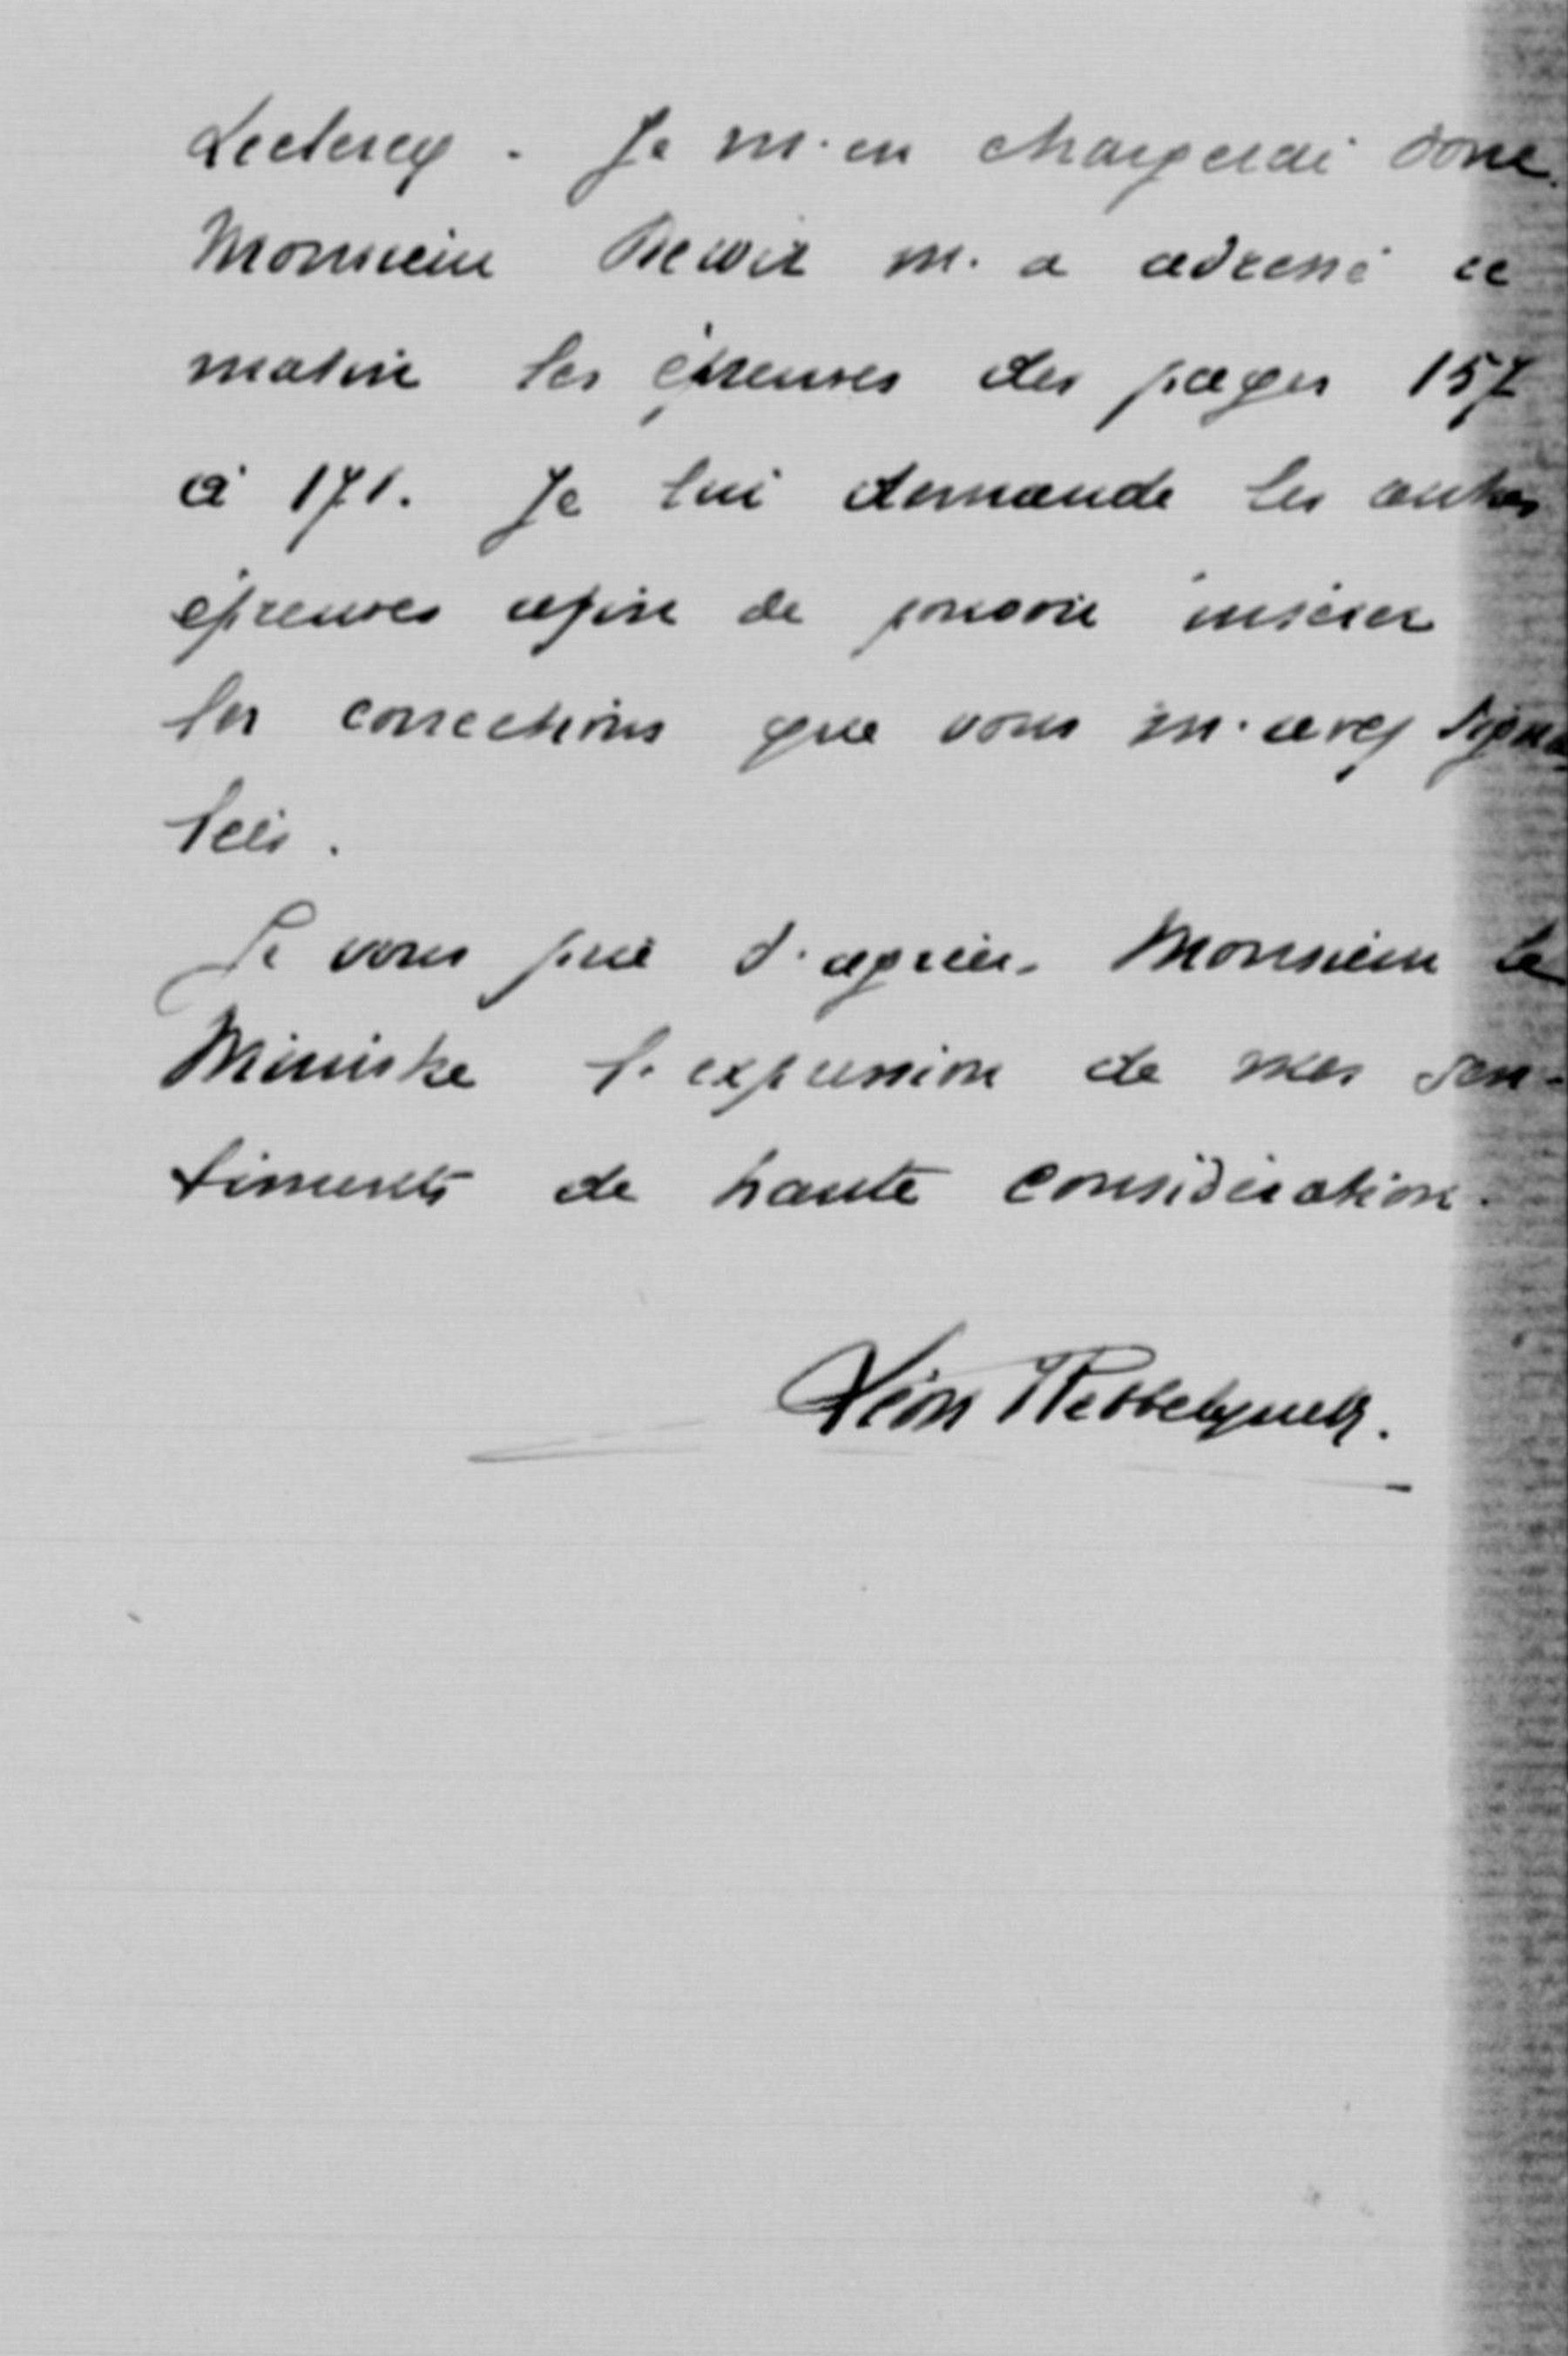 Leclercq. Je m'en chargerai donc.
Monsieur Dewit m'a adressé ce
matin les épreuves des pages 157
à 171. Je lui demande les autres
épreuves afin de pouvoir insérer
les corrections que vous m'avez signa
lées.
Je vous prie d'agréer, Monsieur le
Ministre l'expression de mes sen-
timents de haute considération.
Léon